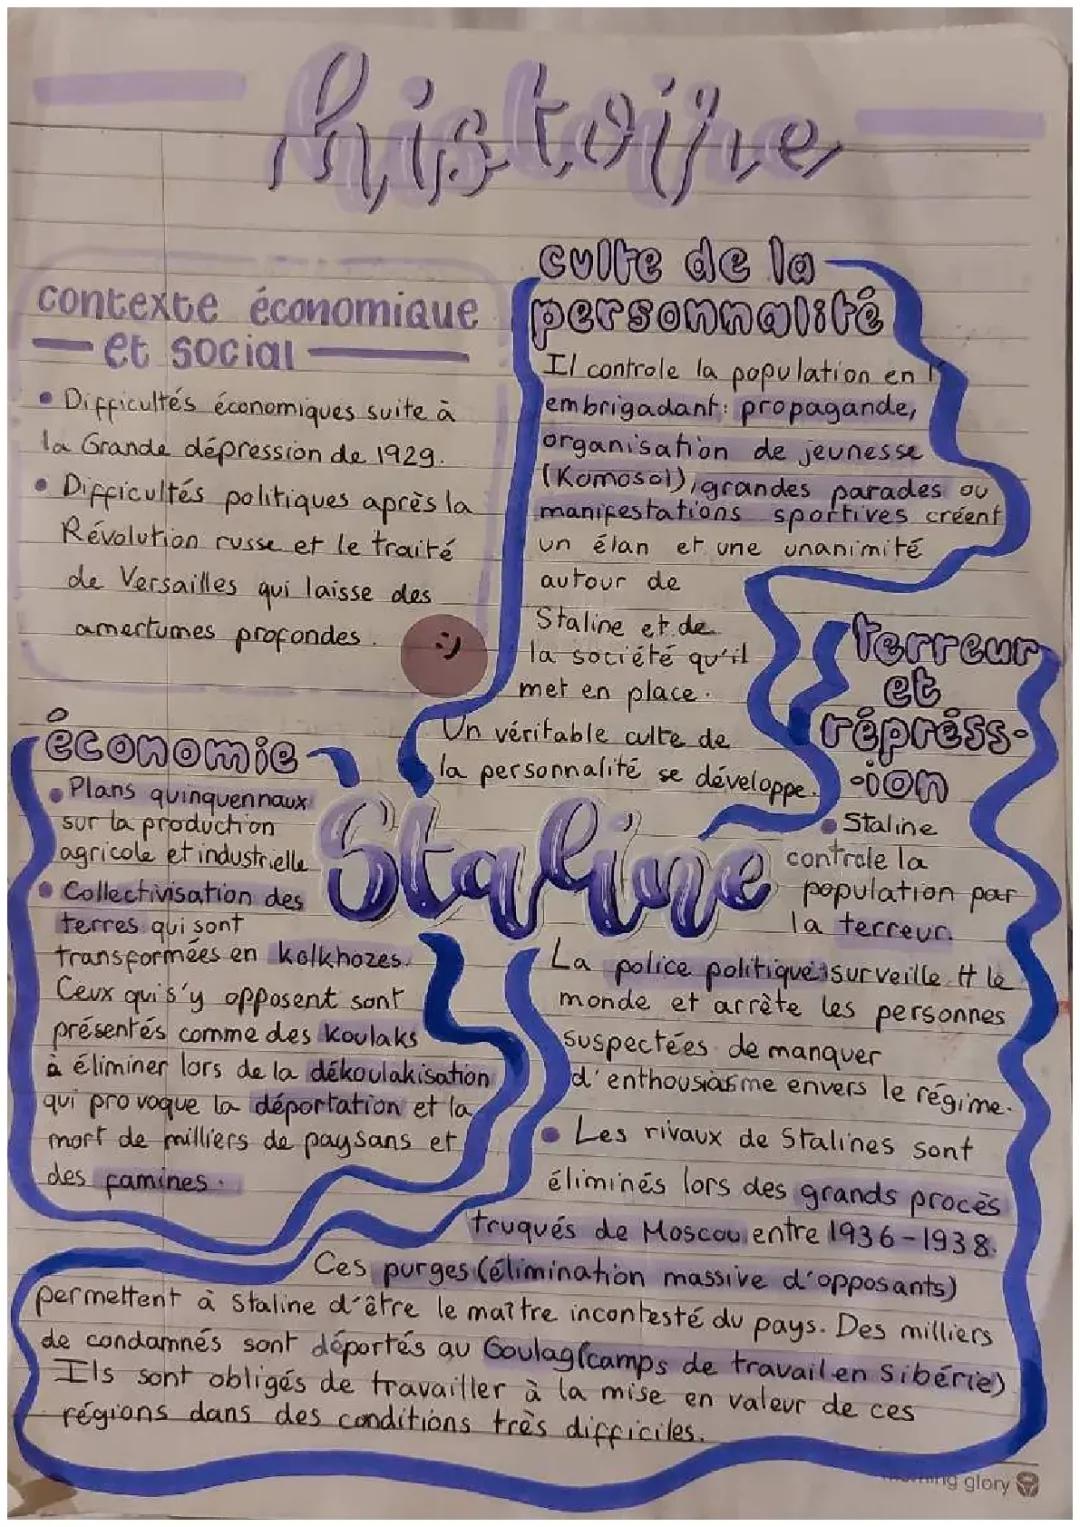 histoire
contexte économique
et social
• Difficultés économiques suite à
la Grande dépression de 1929.
• Difficultés politiques après la
Révolution russe et le traité
de Versailles qui laisse des
amertumes profondes.
:)
culte de la
personnalité
Il controle la population en l'
embrigadant: propagande,
organisation de jeunesse
(Komosol), grandes parades ou
manifestations sportives créent
un élan et une unanimité
autour de
Staline et de
la société qu'il
met en place.
Un véritable culte de
la personnalité se développe.
économie
• Plans quinquennaux
sur la production
agricole et industrielle
• Collectivisation des
terres qui sont
transformées en kolkhozes.
Ceux qui s'y opposent sont
présentés comme des koulaks
à éliminer lors de la dékoulakisation
qui provoque la déportation et la
mort de milliers de paysans et
des famines.
Staline
terreur
et
répress-
-ion
• Staline
controle la
population par
la terreur.
La police politique surveille tt le
monde et arrète les personnes
suspectées de manquer
d'enthousiasme envers le régime.
• Les rivaux de Stalines sont
éliminés lors des grands procès
truqués de Moscou entre 1936-1938.
Ces purges (élimination massive d'opposants)
permettent à Staline d'être le maître incontesté du pays. Des milliers
de condamnés sont déportés au Goulag (camps de travail en Sibérie)
Ils sont obligés de travailler à la mise en valeur de ces
régions dans des conditions très difficiles.
morning glory